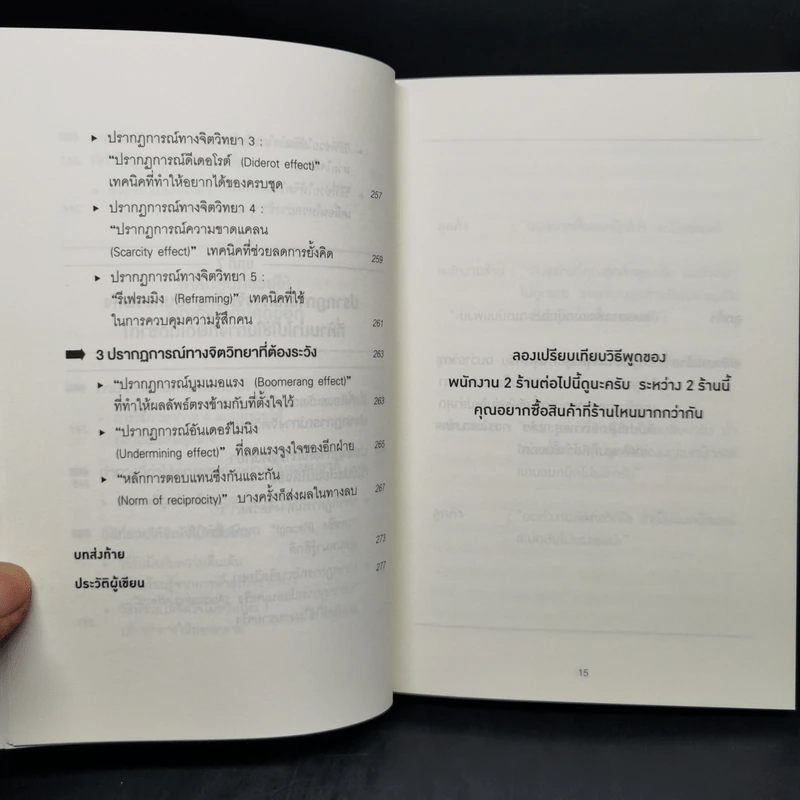 ▶ ปรากฏการณ์ทางจิตวิทยา 3 :
“ปรากฏการณ์ดีเดอโรต์ (Diderot effect)”
เทคนิคที่ทำให้อยากได้ของครบชุด 257
▶ ปรากฏการณ์ทางจิตวิทยา 4 :
“ปรากฏการณ์ความขาดแคลน
(Scarcity effect)” เทคนิคที่ช่วยลดการยั้งคิด 259
▶ ปรากฏการณ์ทางจิตวิทยา 5 :
“รีเฟรมมิง (Reframing)” เทคนิคที่ใช้
ในการควบคุมความรู้สึกคน 261
3 ปรากฏการณ์ทางจิตวิทยาที่ต้องระวัง 263
▶ “ปรากฏการณ์บูมเมอแรง (Boomerang effect)”
ที่ทำให้ผลลัพธ์ตรงข้ามกับที่ตั้งใจไว้ 263
▶ “ปรากฏการณ์อันเดอร์ไมนิง
(Undermining effect)” ที่ลดแรงจูงใจของอีกฝ่าย 265
▶ “หลักการตอบแทนซึ่งกันและกัน
(Norm of reciprocity)” บางครั้งก็ส่งผลในทางลบ 267
บทส่งท้าย 273
ประวัติผู้เขียน 277
ลองเปรียบเทียบวิธีพูดของ
พนักงาน 2 ร้านต่อไปนี้ดูนะครับ ระหว่าง 2 ร้านนี้
คุณอยากซื้อสินค้าที่ร้านไหนมากกว่ากัน
15